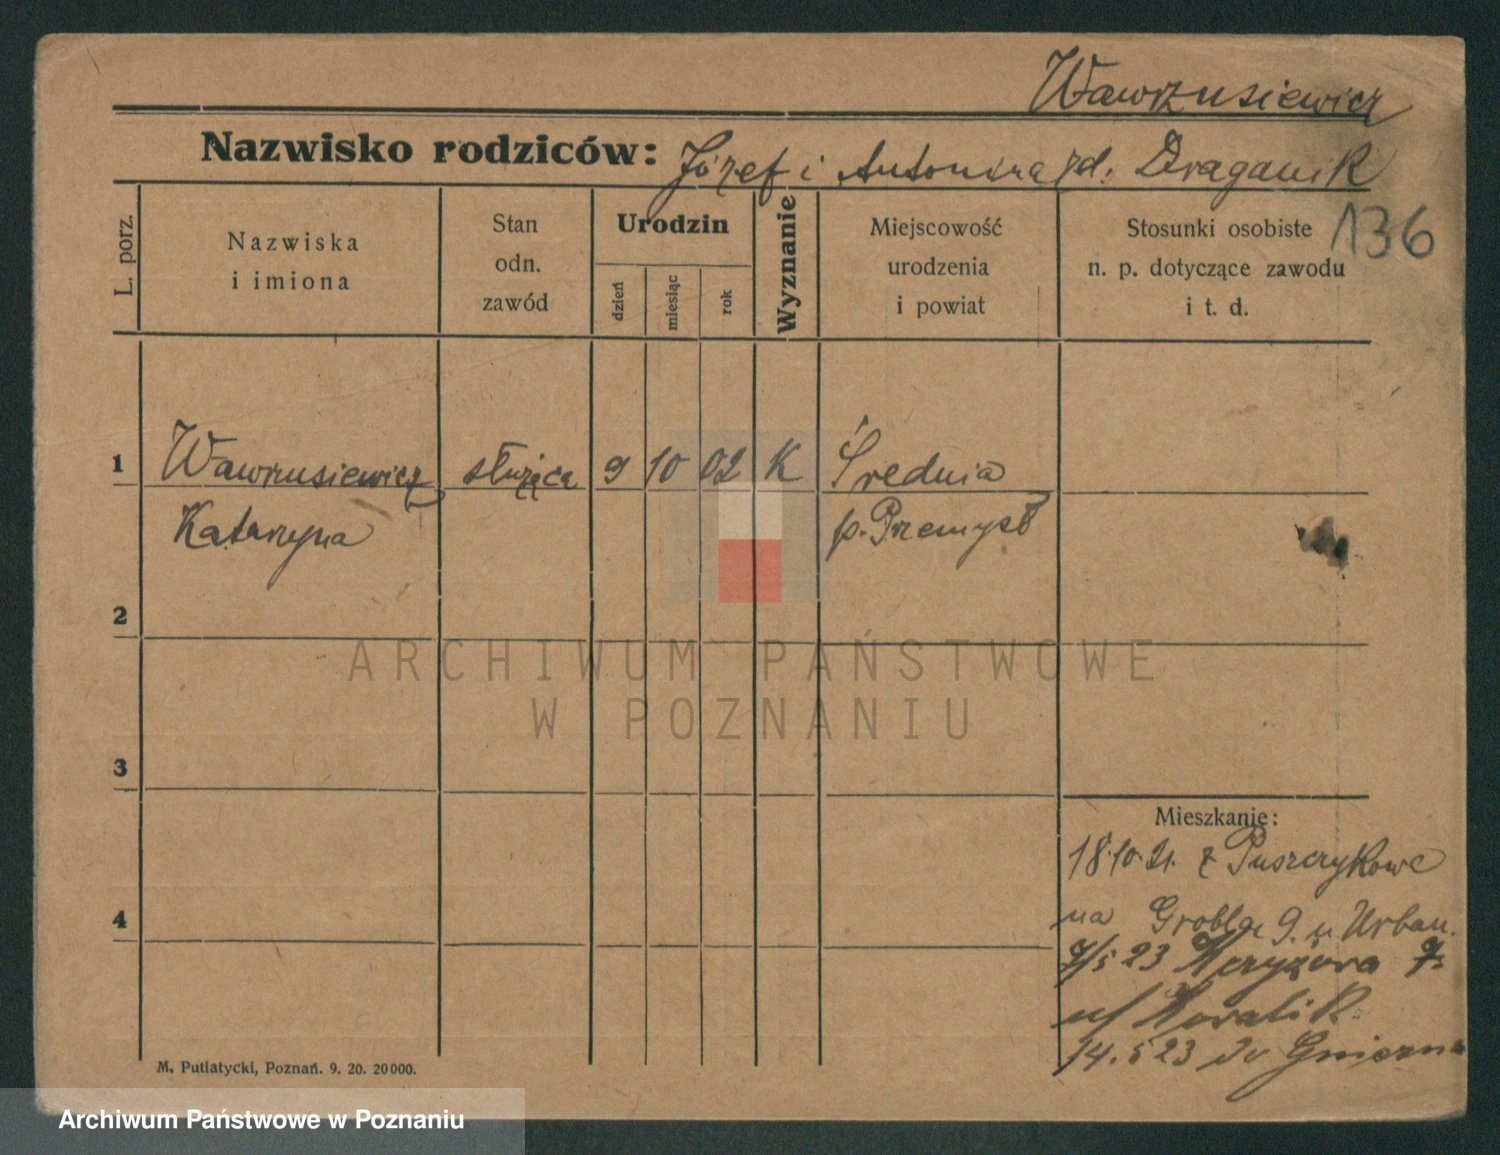 Wawrzusiewicz
Nazwisko rodziców: Józef i Antonina zd. Draganik
136
L. porz.
Nazwiska
i imiona
Stan
odn.
zawód
Urodzin
dzień
miesiąc
rok
Wyznanie
Miejscowość
urodzenia
i powiat
Stosunki osobiste
n. p. dotyczące zawodu
i t. d.
1 Wawrzusiewicz służąca 9 10 02 K Średnia
Katarzyna p. Przemyśl
2
ARCHIWUM PAŃSTWOWE
W POZNANIU
3
Mieszkanie:
18.10.21. z Puszczykowe
na Grobla 9. u Urban.
4
7/5 23 7.
u/ Kowalik
14.5 23 do Gniezna
M. Putiatycki, Poznań. 9. 20. 20000.
Archiwum Państwowe w Poznaniu